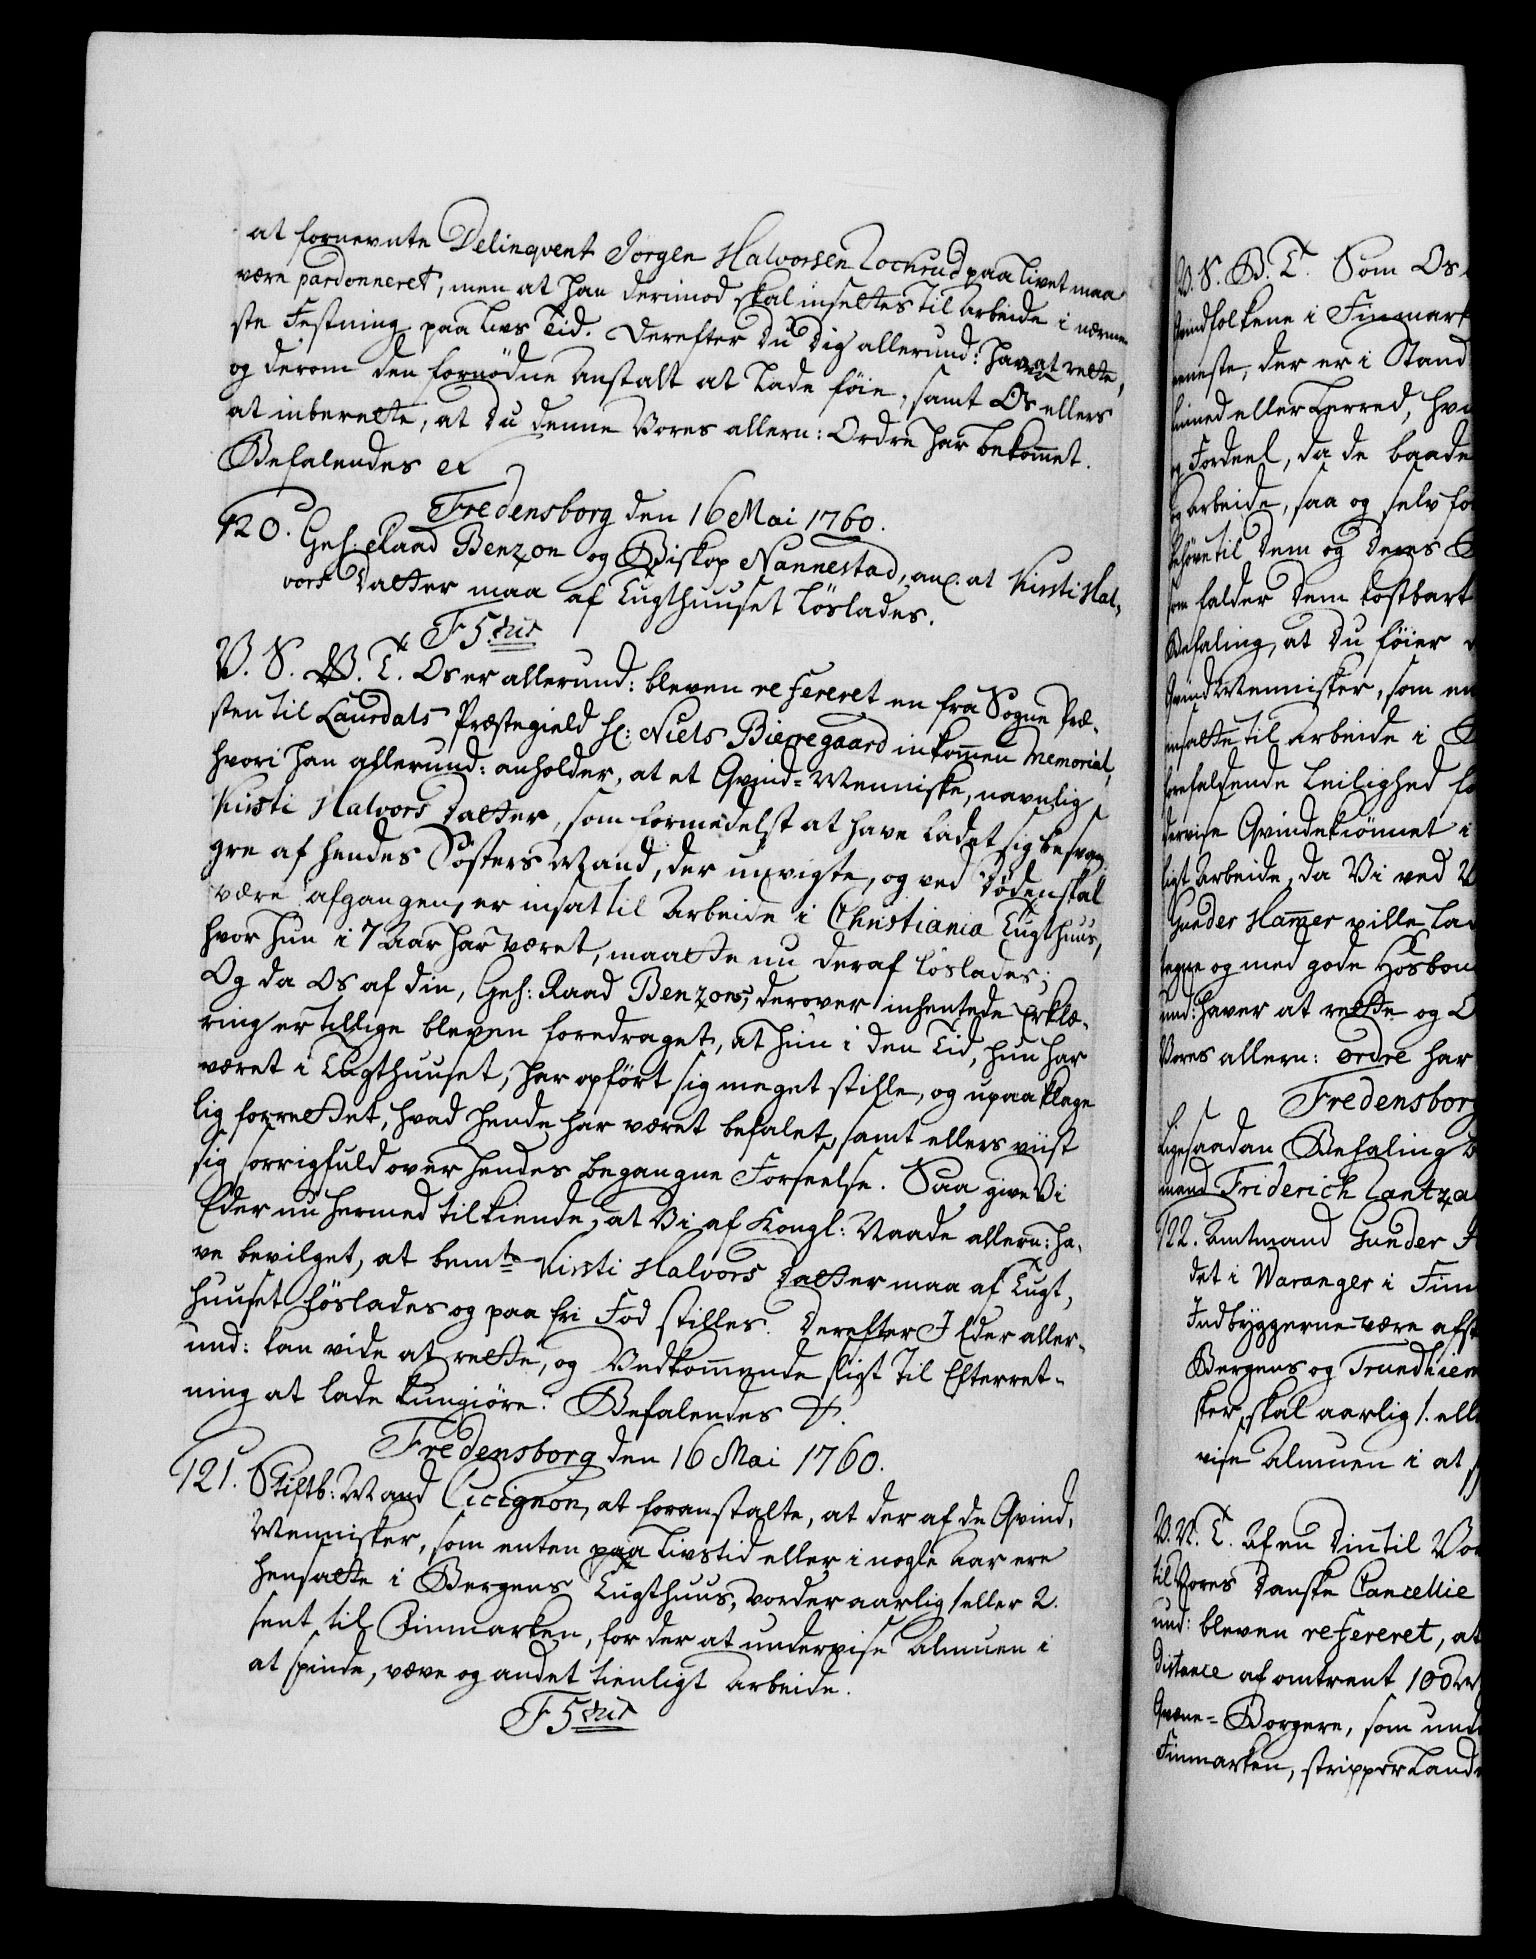 at fornevnte Delinqvent Jörgen Halvorsen Lochrud paa Livet maa
være pardonneret, men at han derimod skal insettes til Arbeide i nærme-
ste Festning paa Livs Tid. Derefter Du Dig allerund: haver at rette,
og derom den fornödne Anstalt at lade föie, samt Os ellers
at inberette, at Du denne Vores allern: Ordre har bekommet.
Befalendes
Fredensborg den 16 Mai 1760.
120. Geh: Raad Benzon og Biskop Nannestad, anl. at Kirsti Hal-
vors Datter maa af Tugthuuset löslades.
F 5tus
V. S. G. T. Os er allerund: bleven refereret en fra Sogne Præ-
sten til Laurdals Præstegield Hr: Niels Bierregaard inkommen Memorial,
hvori han allerund: anholder, at et Qvind-Menniske, navnlig
Kirsti Halvors Datter, som formedelst at have ladet sig besvan-
gre af hendes Sösters Mand, der unvigte, og ved Döden skal
være afgangen, er insat til Arbeide i Christiania Tugthuus,
hvor hun i 7 Aar har været, maatte nu deraf löslades;
Og da Os af din, Geh: Raad Benzons, derover inhentede Erklæ-
ring er tillige bleven foredraget, at hun i den Tid, hun har
været i Tugthuuset, har opfört sig meget stille, og upaaklage
lig forrettet, hvad hende har været befalet, samt ellers viist
sig sorrigfuld over hendes begangne Forseelse. Saa give Vi
Eder nu hermed tilkiende, at Vi af Kongl: Naade allern: ha-
ve bevilget, at bemte Kirsti Halvors Datter maa af Tugt-
huuset löslades og paa fri Fod stilles. Derefter I Eder aller-
und: kan vide at rette, og Vedkommende sligt til Efterret-
ning at lade kungiöre. Befalendes
Fredensborg den 16 Mai 1760.
121. Stiftb: Mand Cicignon, at foranstalte, at der af de Qvind-
Mennisker, som enten paa Livstid eller i nogle Aar ere
hensatte i Bergens Tugthuus, vorder aarlig 1 eller 2.
sent til Finmarken, for der at undervise Almuen i
at spinde, væve og andet tienligt Arbeide.
F 5tus
V. S. G. T. Som Os
Qvindfolkene i Finmark
reneste, der er i Stand
linned eller Lerred, hvo
og Fordeel, da de baade
og Arbeide, saa og selv
behöve til Dem og Deres
som falder Dem kostbart
Befaling, at Du föier
Qvind Mennisker, som en
insatte til Arbeide i
forefaldende Leilighed
dervise Qvindekiönnet i
ligt Arbeide, da Vi ved
Gunder Hammer ville
og med gode Hosbon
und: haver at rette og
Vores allern: Ordre har
Fredensborg
Ligesaadan Befaling
mand Friderich
122. Amtmand Gunder
det i Waranger i Fin
Indbyggerne være
Bergens og Trundhiem
sker, skal aarlig 1. ell
vise Almuen i at
V. S. T. Af en Din til Vor
til Vores Danske Cancellie
und: bleven refereret, at
Distance af omtrent 100
Borgere, som
Finmarken, stripper Land